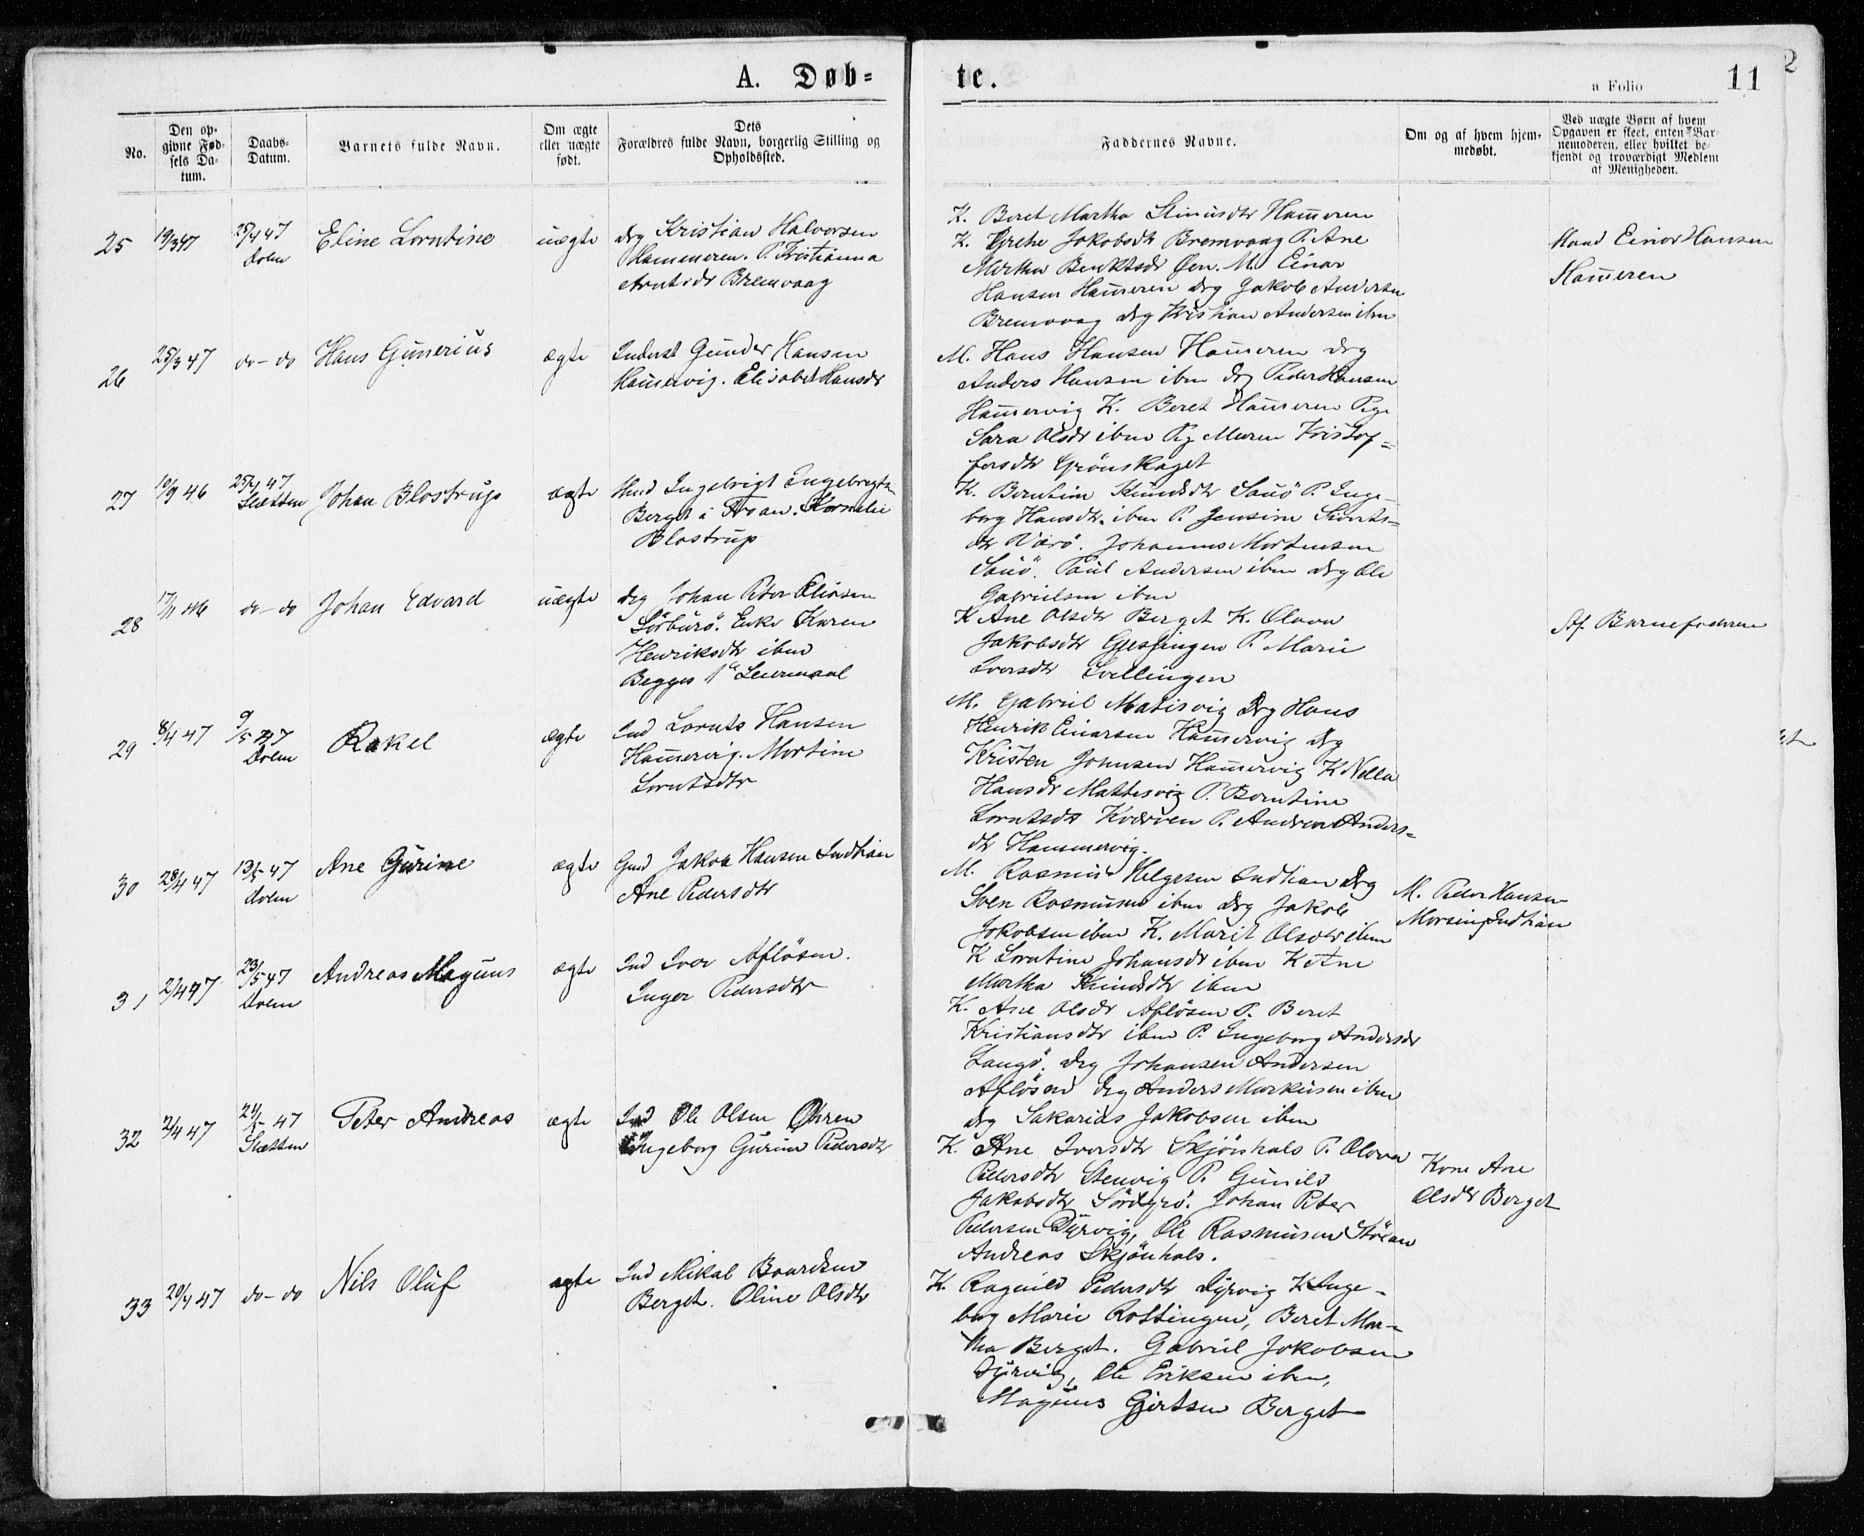 A. Døb-
te.
a Folio
11
2
No.
Den op-
givne Fød-
sels Da-
tum.
Daabs-
Datum.
Barnets fulde Navn.
Om ægte
eller uægte
født.
Dets
Forældres fulde Navn, borgerlig Stilling og
Opholdssted.
Faddernes Navne.
Om og af hvem hjem-
medøbt.
Ved uægte Børn af hvem
Opgaven er skeet, enten Bar-
nemoderen, eller hvilket be-
kjendt og troværdigt Medlem
af Menigheden.
25
19/3 47
25/4 47
Dolm
Eline Lorntine
uægte
Drg Kristian Halvorsen
Hammeren. P. Kristianna
Arntsdr Bremvaag
K. Beret Martha Ham̅eren
K. Grethe Jakobsdtr Bremvaag P. Ane
Martha Bentdsdr Øen. M. Einar
Hansen Ham̅eren Drg Jakob Andersen
Bremvaag Drg Kristian Andersen ibm
Maad Einar Hansen
Ham̅eren
26
25/3 47
do-do
Hans Gunerius
ægte
Inderst Gunder Hansen
Ham̅ervig. Elisabet Hansdr
M. Hans Hansen Ham̅eren Drg
Anders Hansen ibm Drg Peder Hansen
Ham̅ervig K. Beret Ham̅eren Pge
Sara Olsdr ibm Pg Maren Kristof-
fersdtr Grønskaget
27
10/9 46
25/4 47
Sletten
Johan Blostrup
ægte
Husd Ingebrigt Ingebrigtsn
Berget i Froan. Kornelie
Blostrup
K. Berntine Sauø P. Inge-
borg Hansdtr. ibm P. Jensine Sivrts-
dtr Værø. Johannes Mortensen
Sauø. Paul Andersen ibm Drg Ole
Gabrielsen ibm
28
17/11 46
do-do
Johan Edvard
uægte
Drg Johan Peter Eliasen
Sørburø. Enke Karen
Henriksdtr ibm
Begges 1ste Leiermaal
K Ane Olsdtr Berget K. Olava
Jakobsdtr Gjessingen P. Marie
Iversdtr Svellingen
Af Barnefaderen
29
8/4 47
9/5 47
Dolm
Rakel
ægte
Ind Lornts Hansen
Ham̅ervig. Mortine
Lorntsdtr
M. Gabriel Matisvig Drg Hans
Henrik Einarsen Ham̅ervig Drg
Kristen Johnsen Ham̅ervig K Nella
Hansdr Mattisvig P. Berntine
Lorntsdtr Kverven P. Andrea Anders-
dtr Hammervig.
30
28/4 47
13/5 47
Dolm
Ane Gurine
ægte
Gmd Jakob Hansen Indhian
Ane Pedersdtr
M. Rasmus Helgesen Indhian Drg
Sven Rasmusen ibm Drg Jakob
Jakobsen ibm K. Marit Olsdtr ibm
K Lorntine Johansdr ibm K Ane
Martha ibm
M. Peder Hansen
Morsing Indhian
31
2/4 47
23/5 47
Dolm
Andreas Magnus
ægte
Ind Iver Afløsen.
Inger Pedersdtr
K. Ane Olsdr Afløsen P. Beret
Kristiansdtr ibm P. Ingeborg Andersdr
Langø. Drg Johansen Andersen
Afløsen Drg Anders Markusen ibm
Drg Sakarias Jakobsen ibm
32
2/4 47
24/5 47
Sletten
Peter Andreas
ægte
Ind Ole Olsen Øhren
Ingeborg Gurine Pedersdtr
K. Ane Iversdtr Skjønhals P. Olava
Pedersdtr Stenvig P. Gunild
Jakobsdtr Johan Peter
Pedersen Dyrvig, Ole Rasmusen
Andreas Skjønhals.
Kone Ane
Olsdtr Berget
33
20/4 47
do-do
Nils Oluf
ægte
Ind Mikal Baardsen
Berget. Oline Olsdtr
K. Ragnild Pedersdtr Dyrvig K Inge-
borg Marie Rottingen, Beret Mar-
tha Berget. Gabriel Jakobsen
Dyrvig, Ole Eriksen ibm,
Magnus Gjertsen Berget